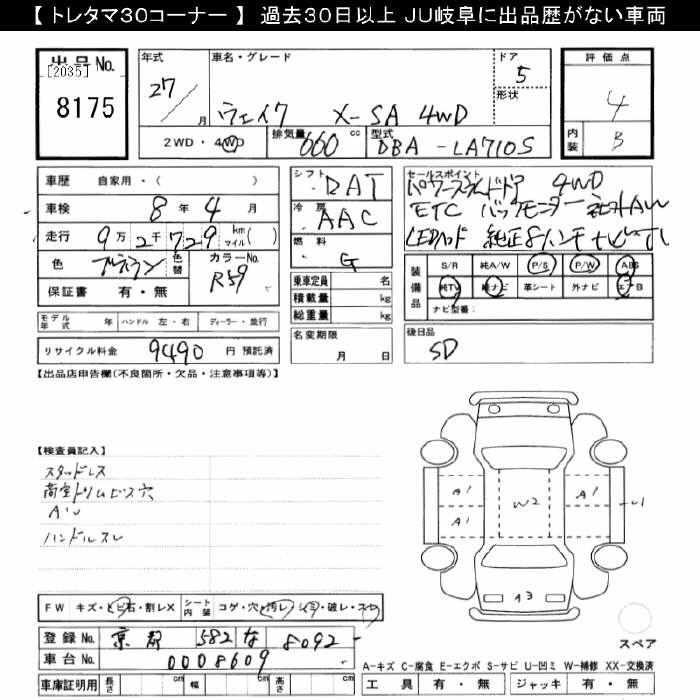 【 トレタマ30コーナー 】 過去30日以上 JU岐阜に出品歴がない車両
出品No.
[2035]
8175
年式
27
月
車名・グレード
ウェイク X-SA 4WD
ドア
5
形状
2WD・4WD
排気量 660 cc
型式 DBA-LA710S
評価点
4
内装 B
車歴 自家用・( )
車検 8年 4月
走行 9万2千729 km マイル( )
色 ブラウン 色替 カラーNo. R59
保証書 有・無
シフト DAT
冷房 AAC
燃料 G
乗車定員 名
積載量 kg
総重量 kg
セールスポイント
パワースライドドア 4WD
ETC バックモニター 社外AW
LEDヘッド 純正8インチナビTV
装備品
S/R 純A/W P/S P/W ABS
純TV 純ナビ 革シート 外ナビ エアB
ナビ型番:
モデル年式 年 ハンドル 左・右 ディーラー・並行
リサイクル料金 9490 円 預託済
名変期限
月 日
後日品
SD
【出品店申告欄(不良箇所・欠品・注意事項等)】
【検査員記入】
スタッドレス
荷室トリムビス穴
AU
ハンドルスレ
A1 A1
A1
W2
U1
A3
スペア
FW キズ・ヒビ石・割レX シート内装 コゲ・穴・汚レ・シミ・破レ・スレ
登録No. 京都 582 な 8092
車台No. 0008609
車庫証明用 長さ cm 幅 cm 高さ cm
A-キズ C-腐食 E-エクボ S-サビ U-凹ミ W-補修 XX-交換済
工具 有・無 ジャッキ 有・無